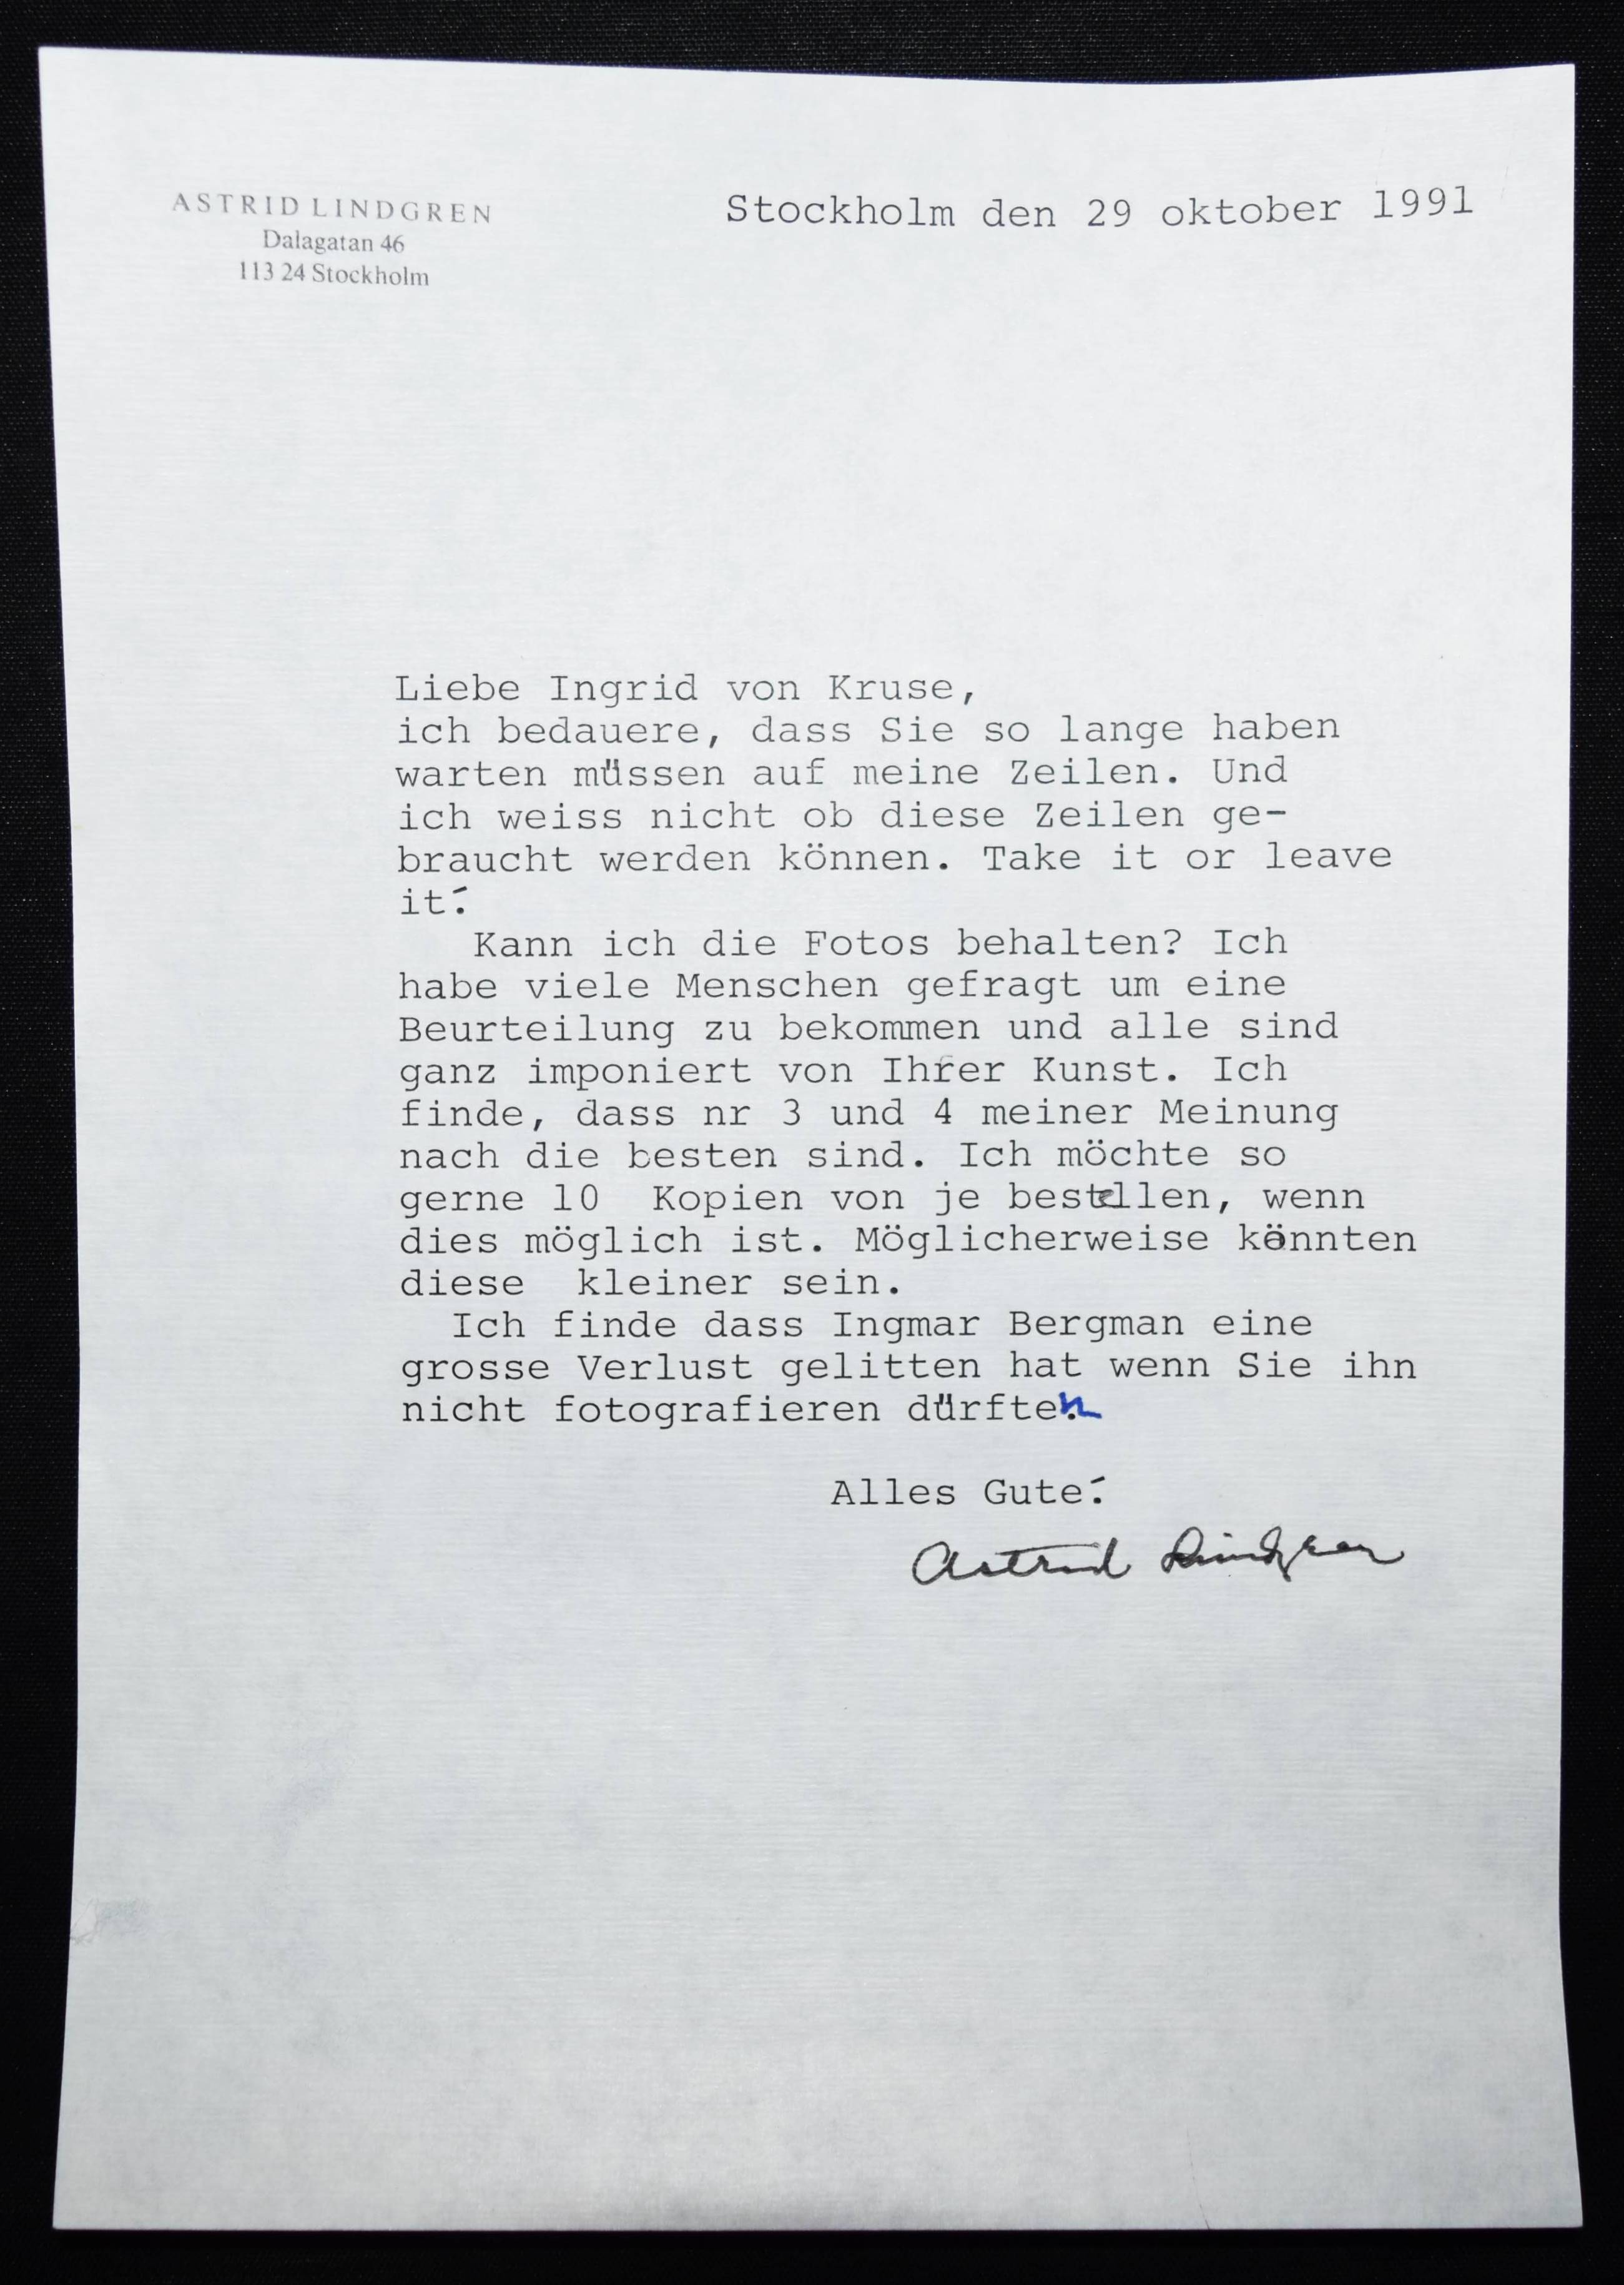 ASTRID LINDGREN
Dalagatan 46
113 24 Stockholm
Stockholm den 29 oktober 1991
Liebe Ingrid von Kruse,
ich bedauere, dass Sie so lange haben
warten müssen auf meine Zeilen. Und
ich weiss nicht ob diese Zeilen ge-
braucht werden können. Take it or leave
it!
Kann ich die Fotos behalten? Ich
habe viele Menschen gefragt um eine
Beurteilung zu bekommen und alle sind
ganz imponiert von Ihrer Kunst. Ich
finde, dass nr 3 und 4 meiner Meinung
nach die besten sind. Ich möchte so
gerne 10 Kopien von je bestellen, wenn
dies möglich ist. Möglicherweise könnten
diese kleiner sein.
Ich finde dass Ingmar Bergman eine
grosse Verlust gelitten hat wenn Sie ihn
nicht fotografieren dürften.
Alles Gute!
Astrid Lindgren